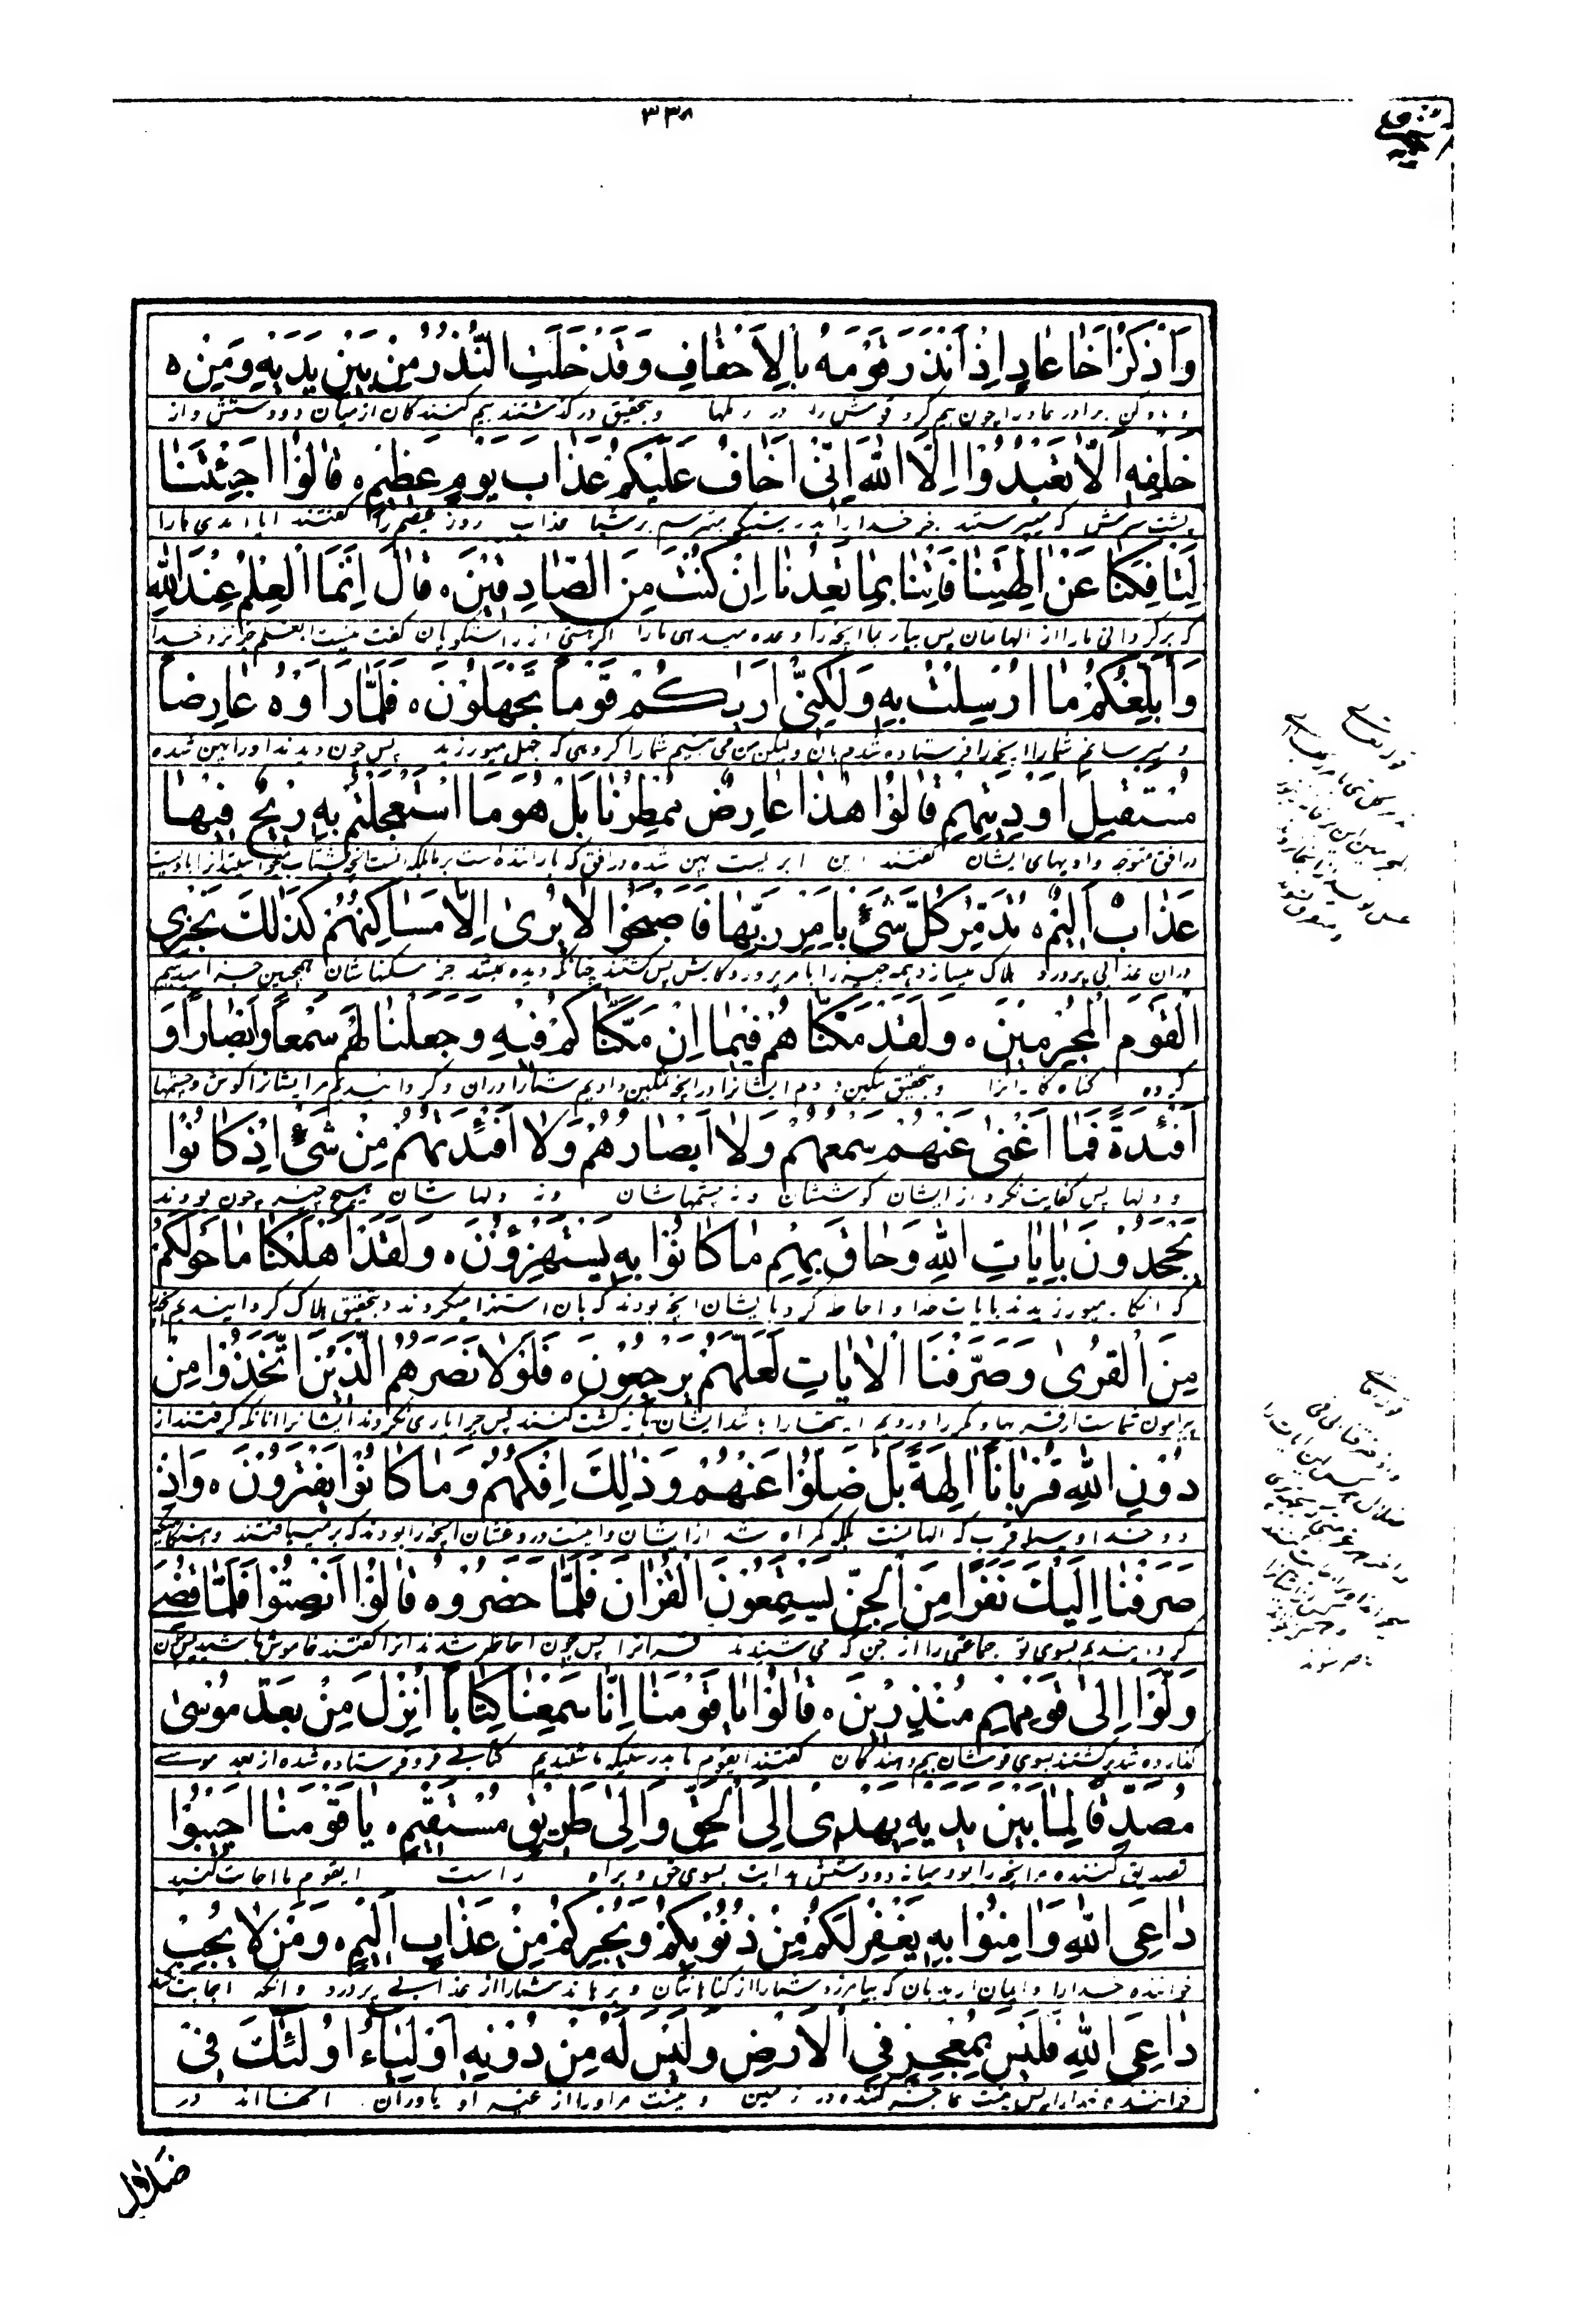 ٣٣٨
وَاذْكُرْ اَخَا عَادٍ اِذْ اَنْذَرَ قَوْمَهُ بِالْاَحْقَافِ وَقَدْ خَلَتِ النُّذُرُ مِنْ بَيْنِ يَدَيْهِ وَمِنْ ه
برادر عاد را چون بیم کرد قومش را در رملها و بتحقیق درگذشتند بیم کنندگان از میان دو دستش و از
خَلْفِهِ اَلَّا تَعْبُدُوا اِلَّا اللهَ اِنِّي اَخَافُ عَلَيْكُمْ عَذَابَ يَوْمٍ عَظِيمٍ ه قَالُوا اَجِئْتَنَا
پشت سرش که مپرستید جز خدا را بدرستیکه میترسم بر شما عذاب روز عظیم را گفتند ایا امدی ما را
لِتَاْفِكَنَا عَنْ اٰلِهَتِنَا فَاْتِنَا بِمَا تَعِدُنَا اِنْ كُنْتَ مِنَ الصَّادِقِينَ ه قَالَ اِنَّمَا الْعِلْمُ عِنْدَ اللهِ
که برگردانی ما را از الهامان پس بیار بما انچه را وعده میدهی ما را اگر هستی از راستگویان گفت نیست علم جز نزد خدا
وَاُبَلِّغُكُمْ مَا اُرْسِلْتُ بِهِ وَلٰكِنِّي اَرٰىكُمْ قَوْمًا تَجْهَلُونَ ه فَلَمَّا رَاَوْهُ عَارِضًا
و میرسانم شما را انچه را فرستاده شدم بان ولیکن من می بینم شما را گروهی که جهل میورزید پس چون دیدند او را پهن شده
مُسْتَقْبِلَ اَوْدِيَتِهِمْ قَالُوا هٰذَا عَارِضٌ مُمْطِرُنَا بَلْ هُوَ مَا اسْتَعْجَلْتُمْ بِهِ رِيحٌ فِيهَا
در افق متوجه وادیهای ایشان گفتند این ابریست پهن شده در افق که باراننده است بر ما بلکه
عَذَابٌ اَلِيمٌ ه تُدَمِّرُ كُلَّ شَيْءٍ بِاَمْرِ رَبِّهَا فَاَصْبَحُوا لَا يُرٰى اِلَّا مَسَاكِنُهُمْ كَذٰلِكَ نَجْزِي
دران عذابی پردرد هلاک میسازد همه چیز را بامر پروردگارش پس گشتند چنانکه دیده نمیشد جز مسکنهاشان همچنین جزا میدهیم
الْقَوْمَ الْمُجْرِمِينَ ه وَلَقَدْ مَكَّنَّاهُمْ فِيمَا اِنْ مَكَّنَّاكُمْ فِيهِ وَجَعَلْنَا لَهُمْ سَمْعًا وَاَبْصَارًا وَ
گروه گناه کار انرا و بتحقیق تمکین دادیم ایشانرا در انچه تمکین دادیم شما را دران و گردانیدیم مر ایشانرا گوش و چشمها
اَفْئِدَةً فَمَا اَغْنٰى عَنْهُمْ سَمْعُهُمْ وَلَا اَبْصَارُهُمْ وَلَا اَفْئِدَتُهُمْ مِنْ شَيْءٍ اِذْ كَانُوا
و دلها پس کفایت نکرد از ایشان گوششان و نه چشمهاشان و نه دلهاشان هیچ چیز چون بودند
يَجْحَدُونَ بِاٰيَاتِ اللهِ وَحَاقَ بِهِمْ مَا كَانُوا بِهِ يَسْتَهْزِؤُنَ ه وَلَقَدْ اَهْلَكْنَا مَا حَوْلَكُمْ
که انکار میورزیدند بایات خدا و احاطه کرد بایشان انچه بودند که بان استهزا میکردند و بتحقیق هلاک گردانیدیم
مِنَ الْقُرٰى وَصَرَّفْنَا الْاٰيَاتِ لَعَلَّهُمْ يَرْجِعُونَ ه فَلَوْلَا نَصَرَهُمُ الَّذِينَ اتَّخَذُوا مِنْ
پیرامون شماست از قریه ها و مکرر اوردیم ایتها را باشد ایشان بازگشت کنند پس چرا یاری نکردند ایشانرا انانکه گرفتند از
دُونِ اللهِ قُرْبَانًا اٰلِهَةً بَلْ ضَلُّوا عَنْهُمْ وَذٰلِكَ اِفْكُهُمْ وَمَا كَانُوا يَفْتَرُونَ ه وَاِذْ
خدا وسیله قرب که الهاست بلکه گمراه شد از ایشان و اینست دروغشان انچه را بودند که برمیبافتند و هنگامیکه
صَرَفْنَا اِلَيْكَ نَفَرًا مِنَ الْجِنِّ يَسْتَمِعُونَ الْقُرْاٰنَ فَلَمَّا حَضَرُوهُ قَالُوا اَنْصِتُوا فَلَمَّا قُضِيَ
گردانیدیم بسوی تو جماعتی را از جن که می شنیدند قرانرا پس چون حاضر شدند انرا گفتند خاموش باشید پس چون
وَلَّوْا اِلٰى قَوْمِهِمْ مُنْذِرِينَ ه قَالُوا يَا قَوْمَنَا اِنَّا سَمِعْنَا كِتَابًا اُنْزِلَ مِنْ بَعْدِ مُوسٰى
گذارده شد برگشتند بسوی قومشان بیم دهندگان گفتند ایقوم ما بدرستیکه ما شنیدیم کتابی فرو فرستاده شده از بعد موسی
مُصَدِّقًا لِمَا بَيْنَ يَدَيْهِ يَهْدِي اِلَى الْحَقِّ وَاِلٰى طَرِيقٍ مُسْتَقِيمٍ ه يَا قَوْمَنَا اَجِيبُوا
تصدیق کننده مر انچه را بود میانه دو دستش هدایت بسوی حق و براه راست ایقوم ما اجابت کنید
دَاعِيَ اللهِ وَاٰمِنُوا بِهِ يَغْفِرْ لَكُمْ مِنْ ذُنُوبِكُمْ وَيُجِرْكُمْ مِنْ عَذَابٍ اَلِيمٍ ه وَمَنْ لَا يُجِبْ
خواننده خدا را و ایمان ارید بان که بیامرزد شما را از گناهانتان و برهاند شما را از عذابی پردرد و انکه اجابت نکند
دَاعِيَ اللهِ فَلَيْسَ بِمُعْجِزٍ فِي الْاَرْضِ وَلَيْسَ لَهُ مِنْ دُونِهِ اَوْلِيَاءُ اُولٰئِكَ فِي
خواننده خدا را پس نیست عاجز کننده در زمین و نیست مر او را از غیر او یاوران انها اند در
ضَلَالٍ